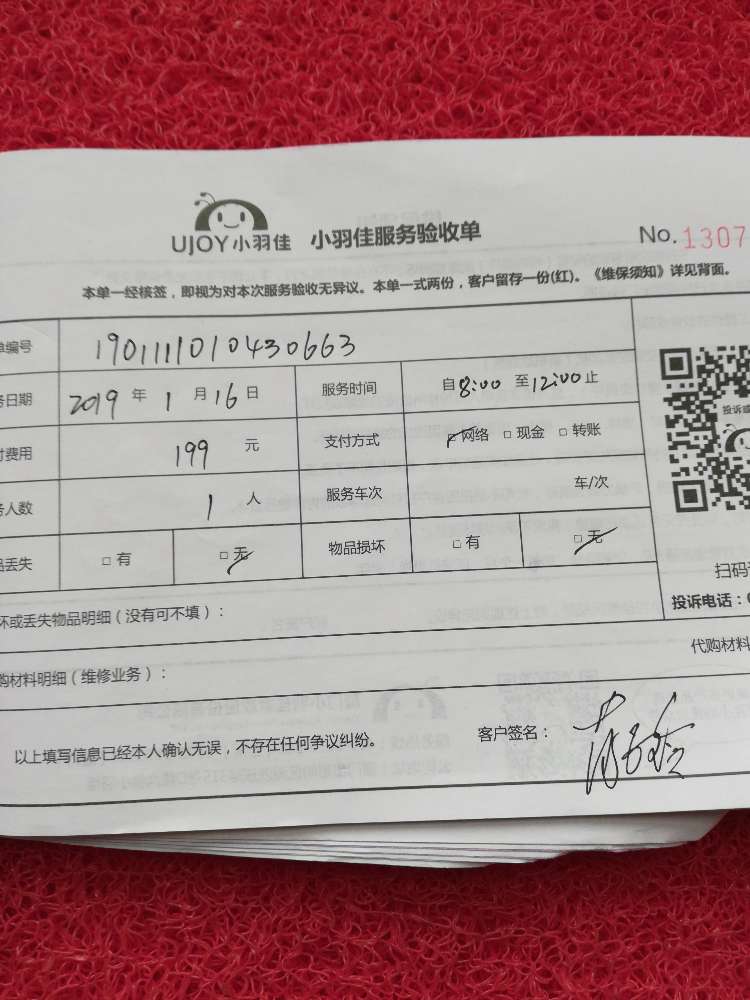 UJOY小羽佳 小羽佳服务验收单 No. 1307
本单一经核签，即视为对本次服务验收无异议。本单一式两份，客户留存一份(红)。《维保须知》详见背面。
单编号 1901111010430663
务日期 2019 年 1 月 16 日 服务时间 自8:00 至12:00止
付费用 199 元 支付方式 □网络 □现金 □转账
务人数 1 人 服务车次 车/次
品丢失 □有 □无 物品损坏 □有 □无
投诉或
扫码
投诉电话：0
坏或丢失物品明细（没有可不填）：
代购材料
购材料明细（维修业务）：
以上填写信息已经本人确认无误，不存在任何争议纠纷。 客户签名：